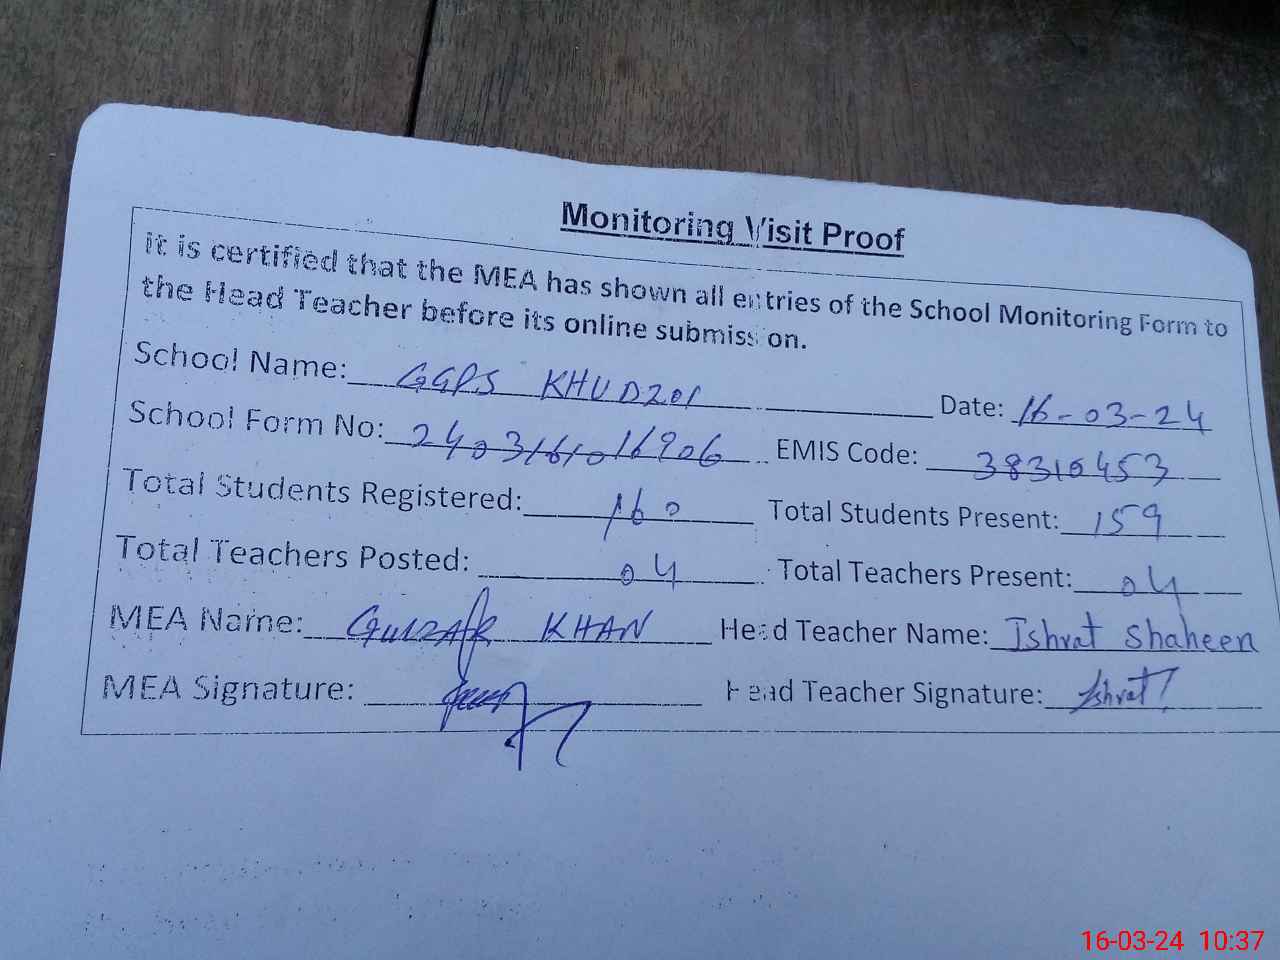 Monitoring Visit Proof
It is certified that the MEA has shown all entries of the School Monitoring Form to
the Head Teacher before its online submission.
School Name: GGPS KHUDZOI Date: 16-03-24
School Form No: 24031616106906 EMIS Code: 38310453
Total Students Registered: 160 Total Students Present: 159
Total Teachers Posted: 04 Total Teachers Present: 04
MEA Name: GULZAR KHAN Head Teacher Name: Ishrat Shaheen
MEA Signature: Head Teacher Signature: Ishrat
16-03-24 10:37